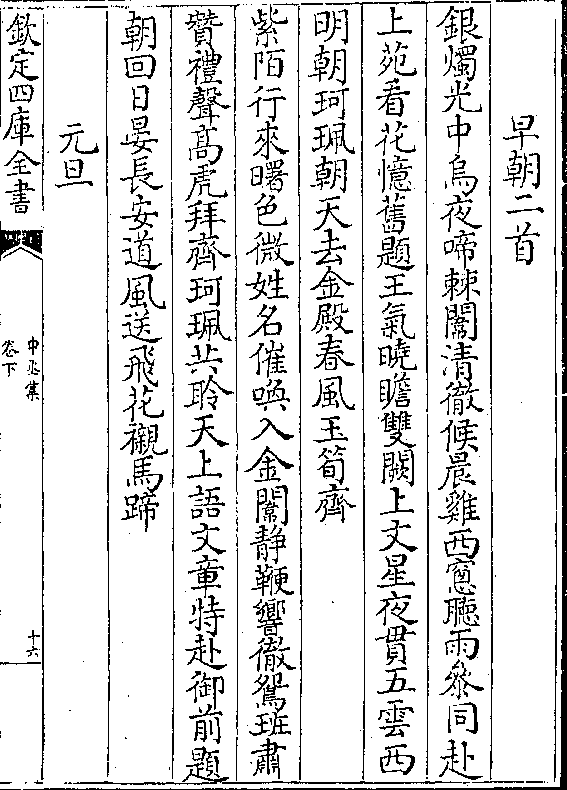 早朝二首
銀燭光中烏夜啼棘闈清徹候晨雞西窓聽雨叅同赴
上苑看花憶舊題王氣曉瞻雙闕上文星夜貫五雲西
明朝珂珮朝天去金殿春風玉筍齊
紫陌行來曙色微姓名催喚入金闈静鞭響徹鴛班肅
賛禮聲髙虎拜齊珂珮共聆天上語文章特赴御前題
朝回日晏長安道風送飛花襯馬蹄
元旦
欽定四庫全書
中丞集
卷下
十六